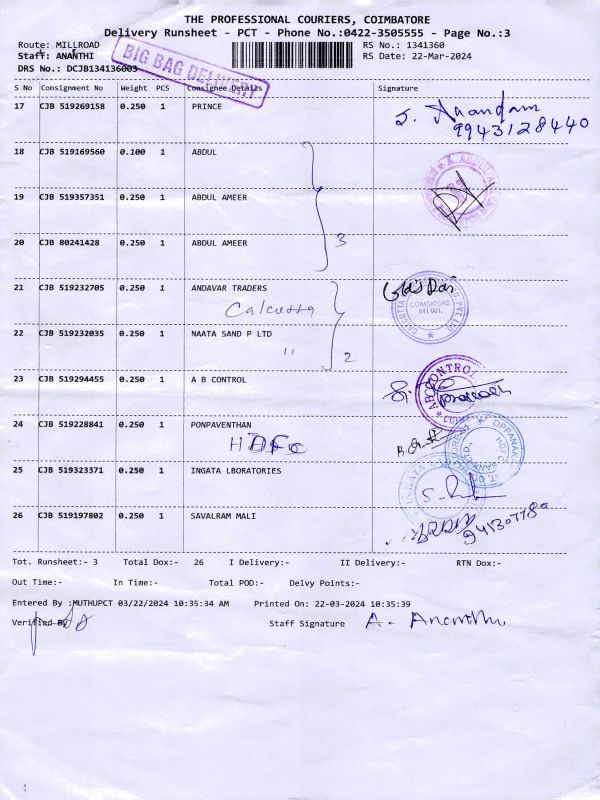 THE PROFESSIONAL COURIERS, COIMBATORE
Delivery Runsheet - PCT - Phone No.:0422-3505555 - Page No.:3
Route: MILLROAD RS No.: 1341360
Staff: ANANTHI RS Date: 22-Mar-2024
DRS No.: DCJB134136003
BIG BAG DELIVERY
S No Consignment No Weight PCS Consignee Details Signature
17 CJB 519269158 0.250 1 PRINCE
9943128440
18 CJB 519169560 0.100 1 ABDUL
19 CJB 519357351 0.250 1 ABDUL AMEER
20 CJB 80241428 0.250 1 ABDUL AMEER
3
21 CJB 519232705 0.250 1 ANDAVAR TRADERS
Calcutta
COIMBATORE
641 001.
22 CJB 519232035 0.250 1 NAATA SAND P LTD
" 2
23 CJB 519294455 0.250 1 A B CONTROL
24 CJB 519228841 0.250 1 PONPAVENTHAN
HDFC
25 CJB 519323371 0.250 1 INGATA LBORATORIES
26 CJB 519197802 0.250 1 SAVALRAM MALI
Tot. Runsheet:- 3 Total Dox:- 26 I Delivery:- II Delivery:- RTN Dox:-
Out Time:- In Time:- Total POD:- Delvy Points:-
Entered By :MUTHUPCT 03/22/2024 10:35:34 AM Printed On: 22-03-2024 10:35:39
Verified By Staff Signature A. Ananthi